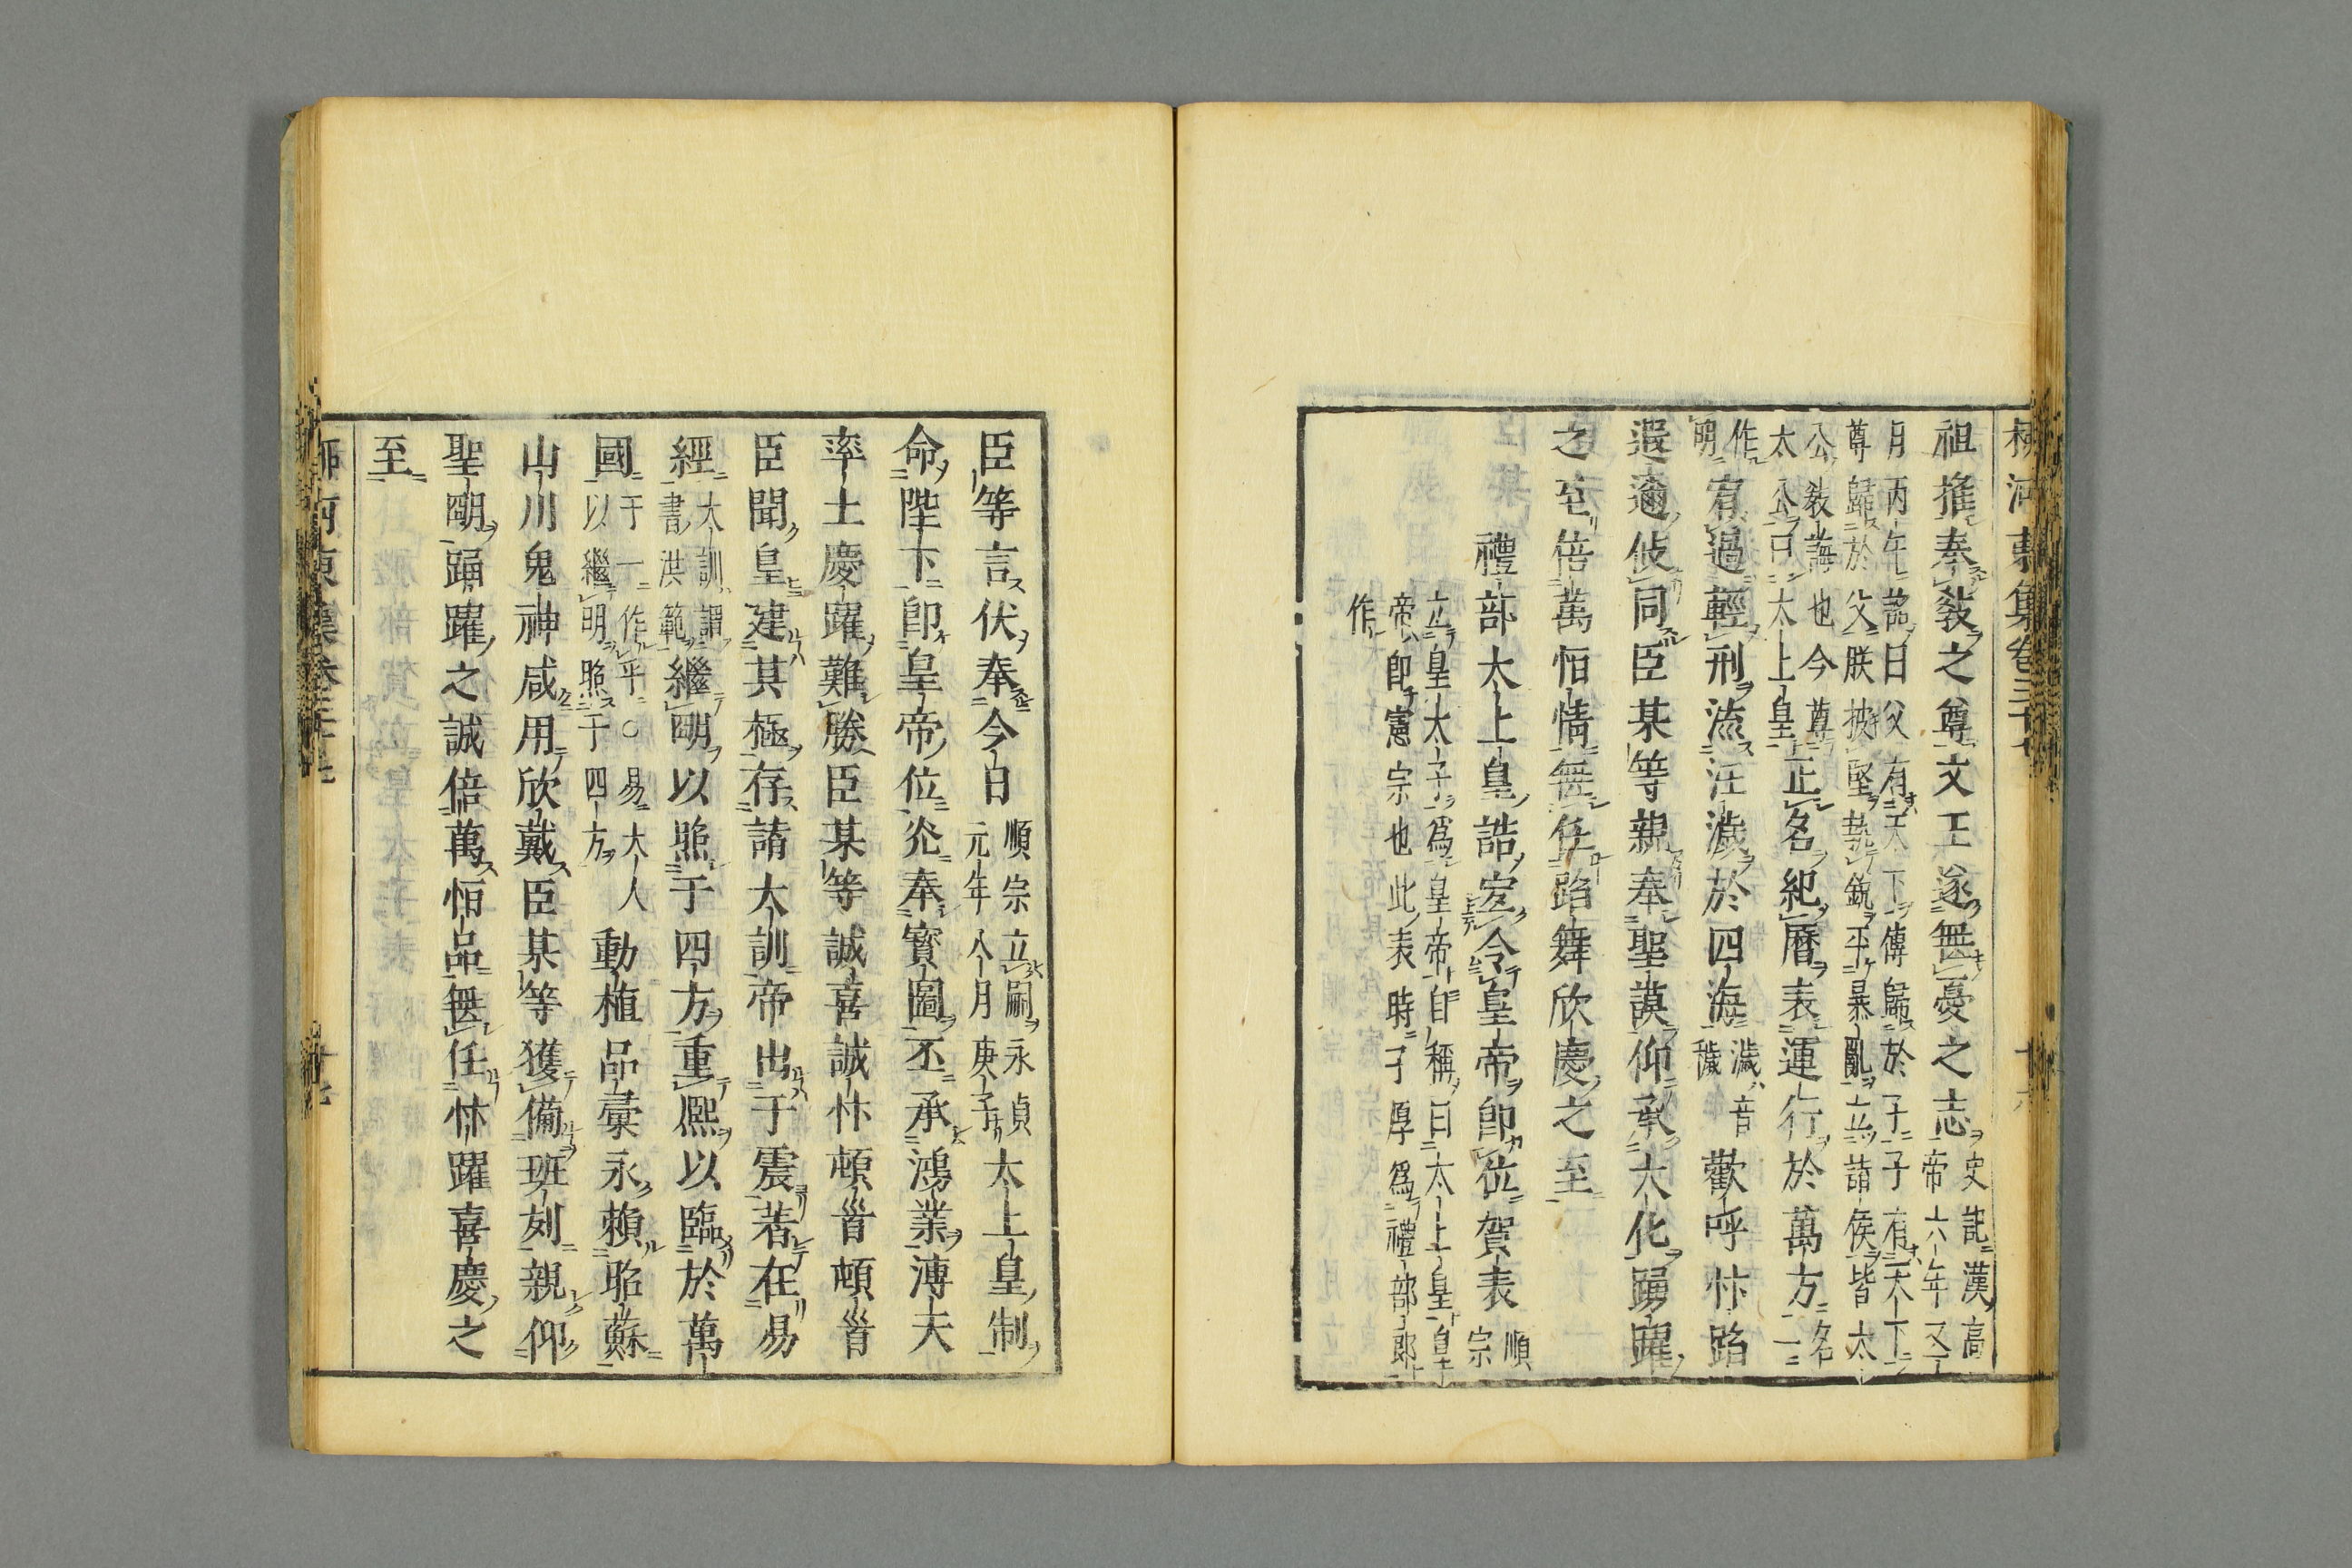 柳河東集卷三十七 十六
祖推奉敎之尊文王遂無憂之志史記漢高帝六年又
月丙午詔曰父有天下傳歸於子子有天下
尊歸於父朕披堅執銳平暴亂立諸侯皆太
公敎誨也今尊太公曰太上皇正名紀曆表運行於萬方名一
作明宥過輕刑流汪濊於四海濊音穢歡呼忭蹈
遐邇攸同臣某等親奉聖謨仰承大化踊躍
之至倍萬恒情無任蹈舞欣慶之至
禮部太上皇誥宜令皇帝即位賀表順宗
立皇太子爲皇帝自稱曰太上皇皇
帝即憲宗也此表時子厚爲禮部郎
作
臣等言伏奉今日順宗立嗣永貞元年八月庚子太上皇制
命陛下即皇帝位光奉寶圖丕承鴻業溥天
率土慶躍難勝臣某等誠喜誠忭頓首頓首
臣聞皇建其極存諸大訓帝出于震著在易
經大訓謂書洪範繼明以照于四方重熙以臨於萬
國于一作乎○易大人以繼明照于四方動植品彙永賴昭蘇
山川鬼神咸用欣戴臣某等獲備班列親仰
聖明踊躍之誠倍萬恒品無任忭躍喜慶之
至
柳河東集卷三十七 十七